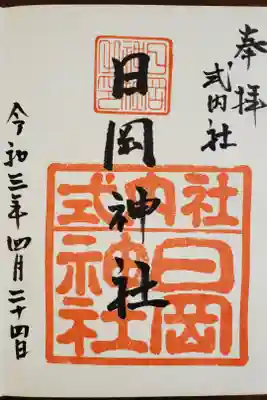 奉拝
式内社
日岡神社
式内社
日岡
神社
令和三年四月二十四日